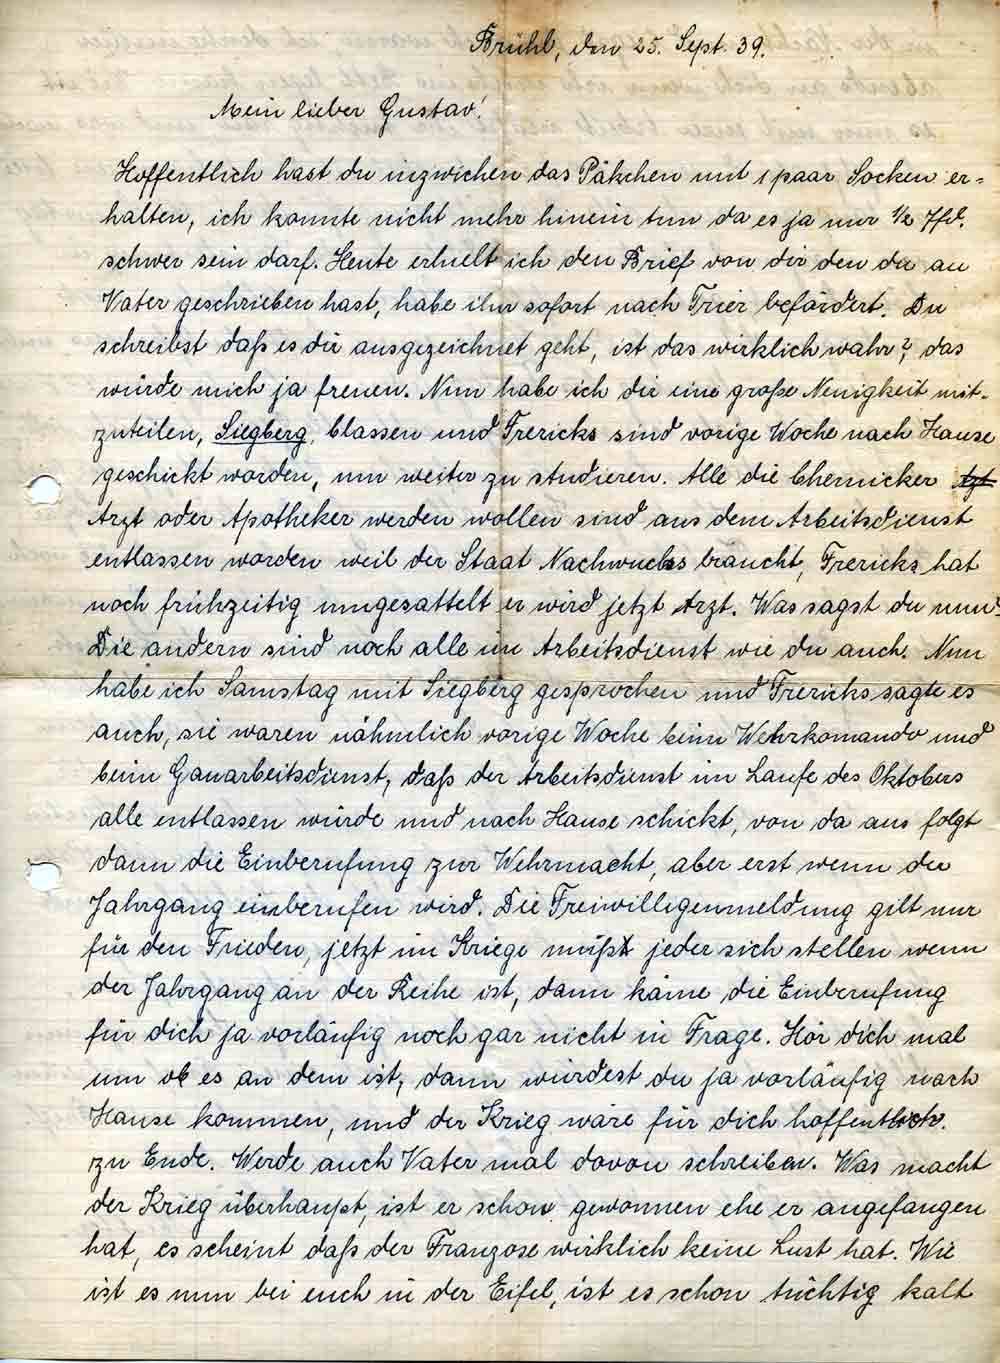 Brühl, den 25. Sept. 39.
Mein lieber Gustav!
Hoffentlich hast du inzwichen das Päkchen mit 1 paar Socken er-
halten, ich konnte nicht mehr hinein tun da es ja nur 1/2 Pfd.
schwer sein darf. Heute erhielt ich den Brief von dir den du an
Vater geschrieben hast, habe ihn sofort nach Trier befördert. Du
schreibst daß es dir ausgezeichnet geht, ist das wirklich wahr? das
würde mich ja freuen. Nun habe ich dir eine große Neuigkeit mit-
zuteilen, Siegberg, Classen und Frericks sind vorige Woche nach Hause
geschickt worden, um weiter zu studieren. Alle die Chemicker
Arzt oder Apotheker werden wollen sind aus dem Arbeitsdienst
entlassen worden weil der Staat Nachwuchs braucht, Frericks hat
noch frühzeitig umgesattelt er wird jetzt Arzt. Was sagst du nun.
Die andern sind noch alle im Arbeitsdienst wie du auch. Nun
habe ich Samstag mit Siegberg gesprochen und Frericks sagte es
auch, sie waren nähmlich vorige Woche beim Wehrkomando und
beim Gauarbeitsdienst, daß der Arbeitsdienst im Laufe des Oktobers
alle entlassen würde und nach Hause schickt, von da aus folgt
dann die Einberufung zur Wehrmacht, aber erst wenn der
Jahrgang einberufen wird. Die Freiwilligenmeldung gilt nur
für den Frieden, jetzt im Kriege müßt jeder sich stellen wenn
der Jahrgang an der Reihe ist, dann käme die Einberufung
für dich ja vorläufig noch gar nicht in Frage. Hör dich mal
um ob es an dem ist, dann würdest du ja vorläufig nach
Hause kommen, und der Krieg wäre für dich hoffentlich
zu Ende. Werde auch Vater mal davon schreiben. Was macht
der Krieg überhaupt, ist er schon gewonnen ehe er angefangen
hat, es scheint daß der Franzose wirklich keine Lust hat. Wie
ist es nun bei euch in der Eifel, ist es schon tüchtig kalt